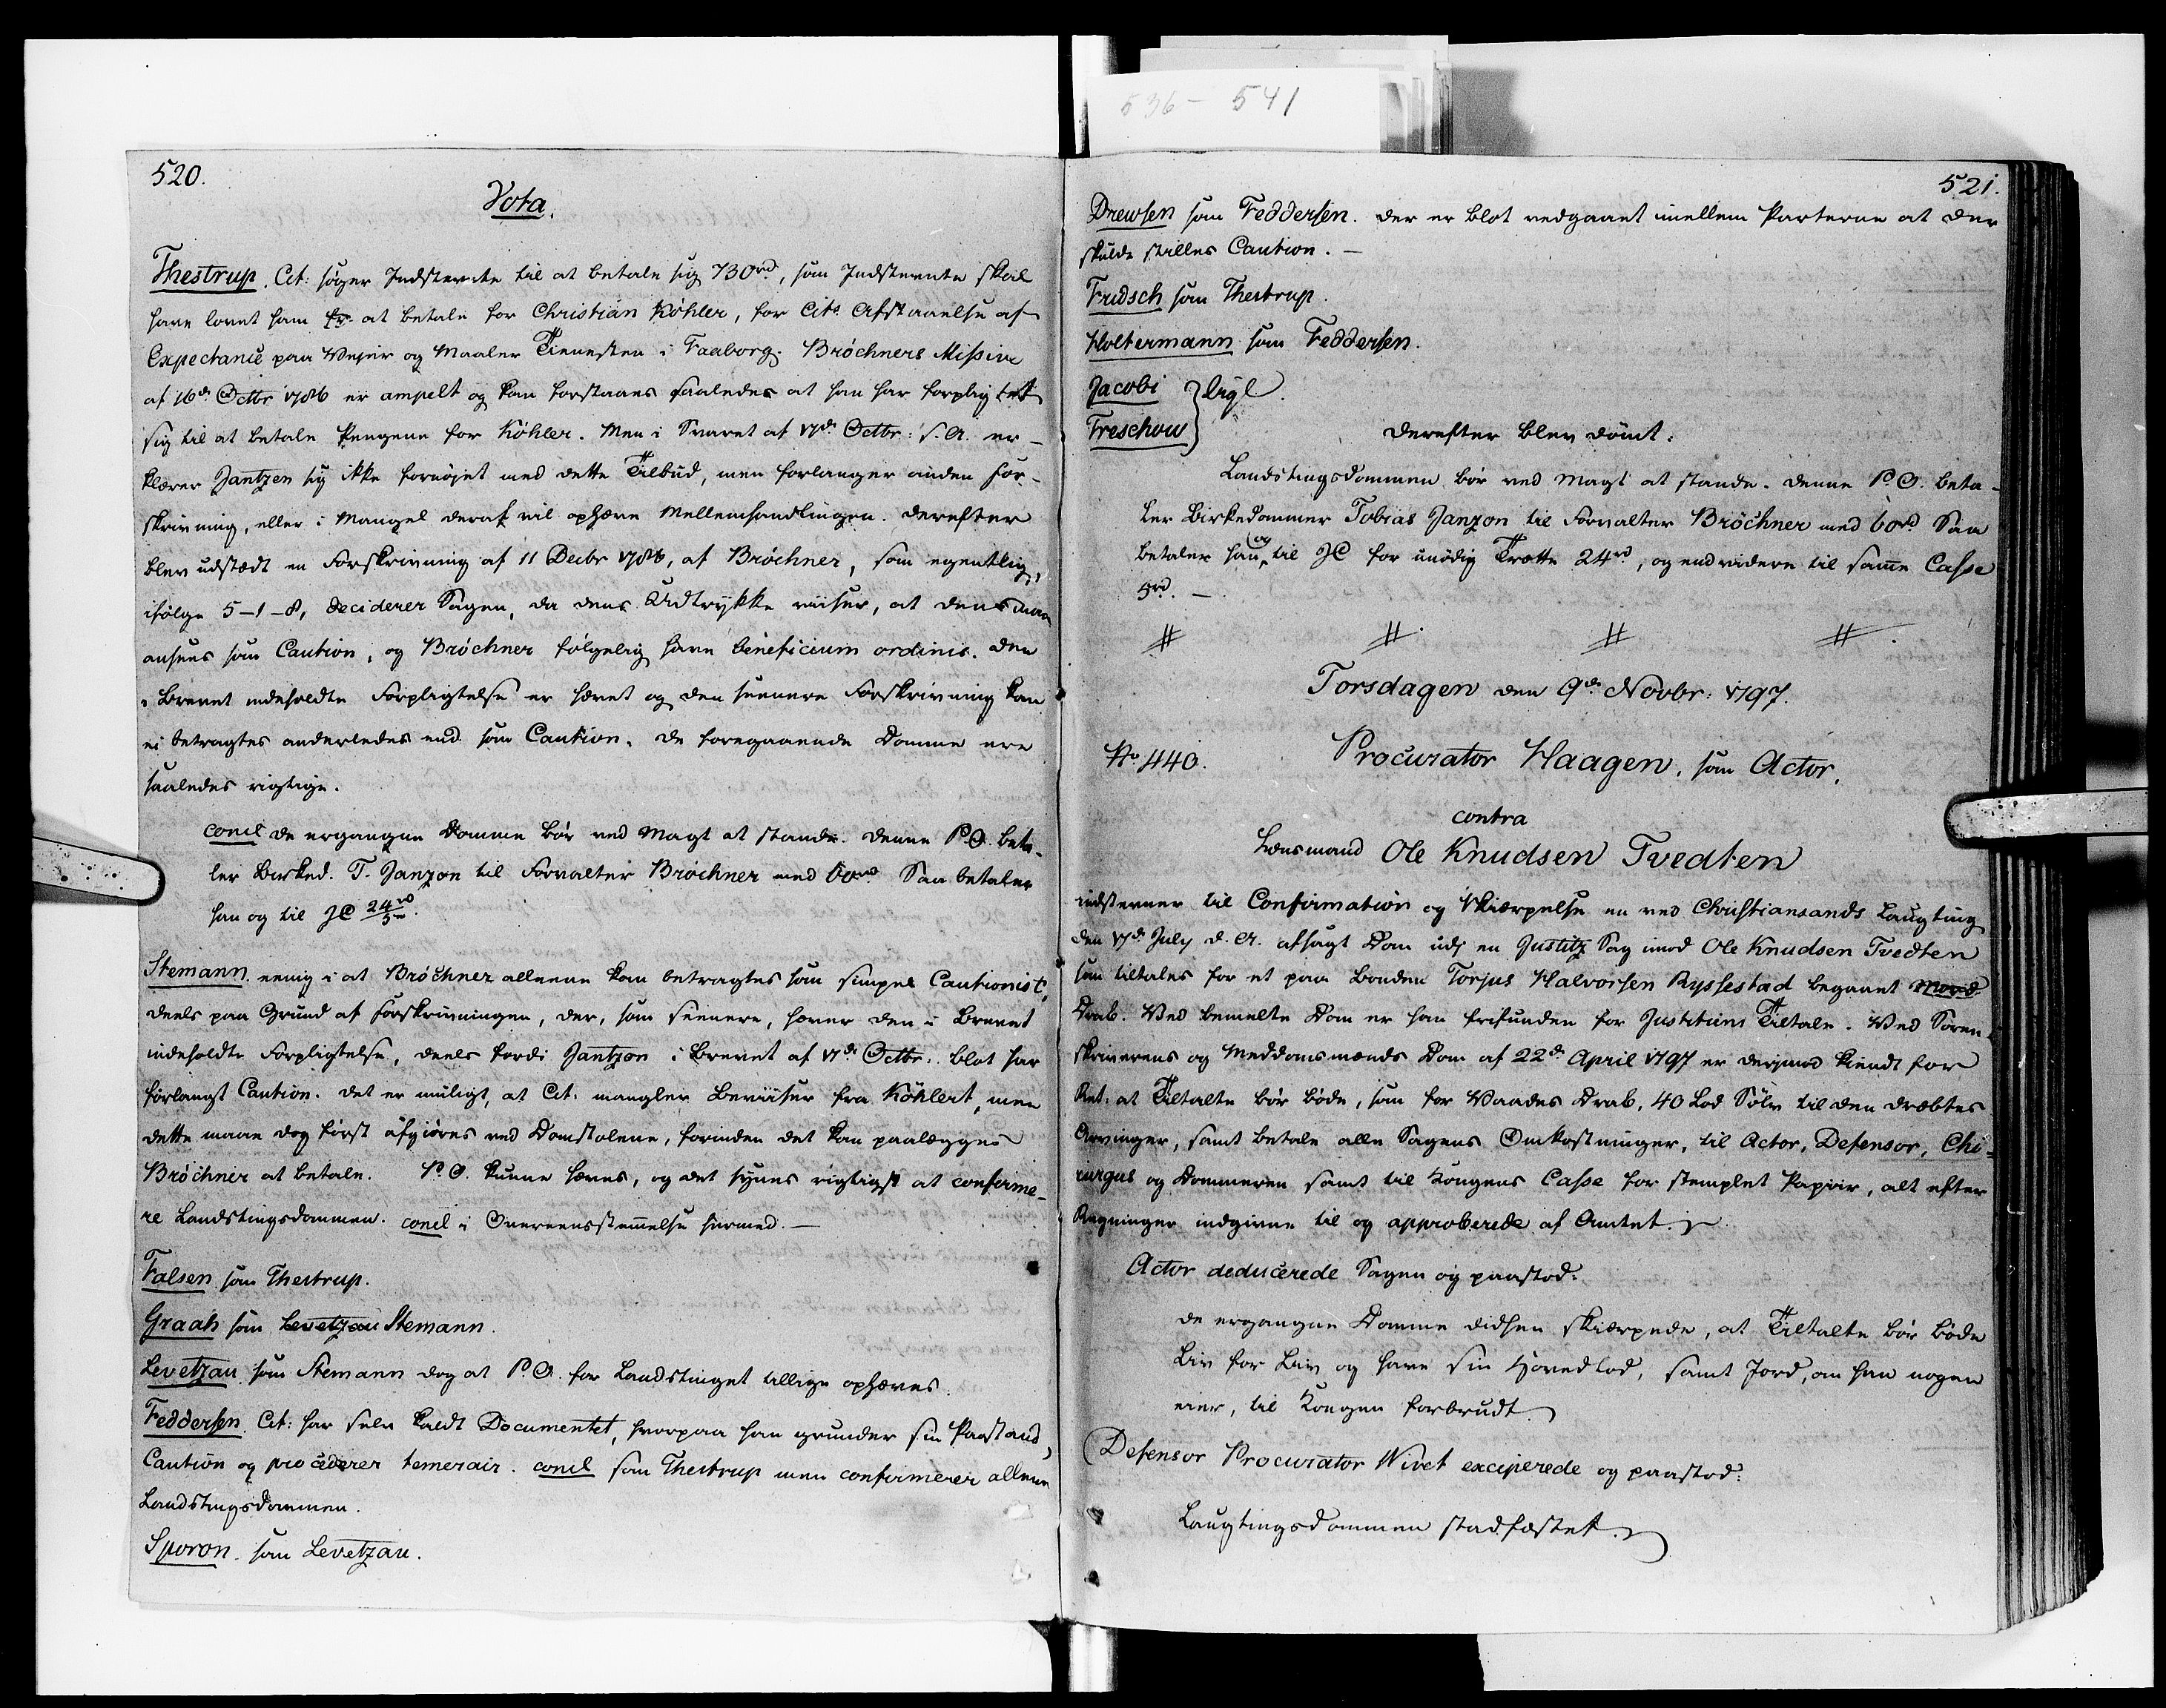 536 - 541
520.
Vota.
Thestrup. Cit: søger Indstevnte til at betale sig 730rd, som Indstevnte skal
have lovet ham at betale for Christian Köhler, for Cits Afstaaelse af
Expectance paa Vejer og Maaler Tienesten i Faaborg. Bröchners Missive
af 16d. Octbr 1786 er ampelt og kan forstaaes saaledes at han har forpligtet
sig til at betale Pengene for Köhler. Men i Svaret af 17d. Octbr: s. A. er-
klærer Jantzen sig ikke fornøjet med dette Tilbud, men forlanger anden For-
skrivning, eller i Mangel deraf vil ophæve Mellemhandlingen. Derefter
blev udstædt en Forskrivning af 11 Decbr 1786, af Bröchner, som egentlig,
ifølge 5-1-8, deciderer Sagen, da dens Udtrykke viiser, at den maa
ansees som Caution, og Bröchner følgelig have beneficium ordinis. Den
i Brevet indeholdte Forpligtelse er hævet og den seenere Forskrivning kan
ei betragtes anderledes end som Caution. De foregaaende Domme ere
saaledes rigtige.
concl de ergangne Domme bør ved Magt at stande. Denne P. O. beta-
ler Birked. T. Janzon til Forvalter Bröchner med 60rd. Saa betaler
han og til JC 24rd/5rd.
Stemann. eenig i at Bröchner alleene kan betragtes som simpel Cautionist,
deels paa Grund af Forskrivningen, der, som seenere, hæver den i Brevet
indeholdte Forpligtelse, deels fordi Jantzon i Brevet af 17d. Octbr. blot har
forlangt Caution. Det er muligt, at Cit. mangler Beviiser fra Köhlert, men
dette maae dog først afgiøres ved Domstolene, forinden det kan paalægges
Bröchner at betale. P. O. kunne hæves, og det synes rigtigst at confirme-
re Landstingsdommen. concl i Overeensstemmelse hermed. —
Falsen som Thestrup.
Graah som Levetzau Stemann.
Levetzau som Stemann dog at P. O. for Landstinget tillige ophæves.
Feddersen. Cit: har selv kaldt Documentet, hvorpaa han grunder sin Paastand,
Caution og procederer temerair. concl som Thestrup men confirmerer allene
Landstingsdommen.
Sporon. som Levetzau.
521.
Drewsen som Feddersen. der er blot vedgaaet imellem Parterne at der
skulde stilles Caution. —
Fridsch som Thestrup.
Holtermann som Feddersen.
Jacobi
Treschow } ligl.
Derefter blev dømt:
Landstingsdommen bør ved Magt at stande. Denne P. O. beta-
ler Birkedommer Tobias Janzon til Forvalter Bröchner med 60rd Saa
betaler han og til JC for unødig Trætte 24rd, og endvidere til samme Casse
5rd. —
# # # #
Torsdagen den 9d. Novbr: 1797.
No 440. Procurator Haagen, som Actor,
contra
Lensmand Ole Knudsen Tvedten
indstevner til Confirmation og Skiærpelse en ved Christiansands Laugting
den 17d. July d. A. afsagt Dom udj en Justitz Sag imod Ole Knudsen Tvedten
som tiltales for et paa Bonden Torjus Halvorsen Ryssestad begaaet Mord
Drab. Ved bemelte Dom er han frifunden for Justitiens Tiltale. Ved Soren-
skriverens og Meddomsmænds Dom af 22d. April 1797 er derimod kiendt for
Ret: at Tiltalte bør bøde, som for Vaades Drab, 40 Lod Sølv til den dræbtes
Arvinger, samt betale alle Sagens Omkostninger, til Actor, Defensor, Chi-
rurgus og Dommeren samt til Kongens Casse for stemplet Papiir, alt efter
Regninger indgivne til og approberede af Amtet.
Actor deducerede Sagen og paastod:
de ergangne Domme didhen skiærpede, at Tiltalte bør bøde
Liv for Liv og have sin Hovedlod, samt Jord, om han nogen
eier, til Kongen forbrudt.
Defensor Procurator Wivet exciperede og paastod:
Laugtingsdommen stadfæstet.